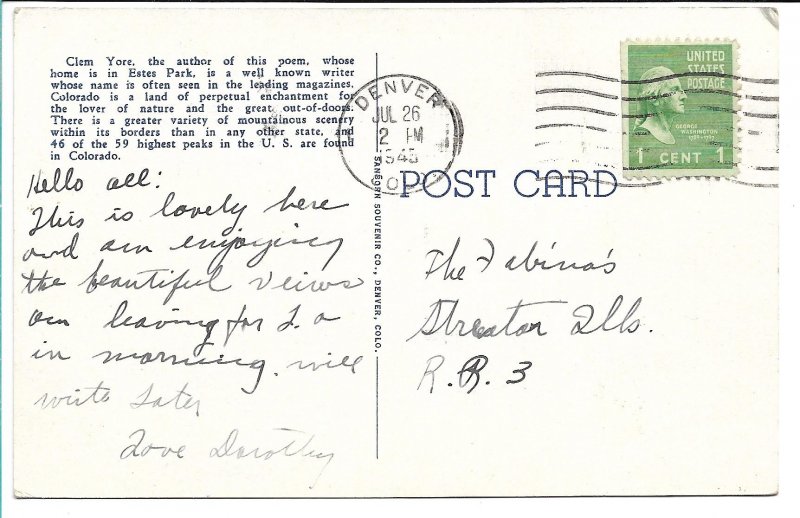 Clem Yore, the author of this poem, whose
home is in Estes Park, is a well known writer
whose name is often seen in the leading magazines.
Colorado is a land of perpetual enchantment for
the lover of nature and the great out-of-doors.
There is a greater variety of mountainous scenery
within its borders than in any other state, and
46 of the 59 highest peaks in the U. S. are found
in Colorado.
Hello all:
This is lovely here
and am enjoying
the beautiful veiws
am leaving for L. a
in morning. will
write Later
Love Dorothy
SANBORN SOUVENIR CO., DENVER, COLO.
DENVER
JUL 26
2 PM
1945
UNITED
STATES
POSTAGE
GEORGE
WASHINGTON
1789-1797
1 CENT 1
POST CARD
The Fabina's
Streator Ills.
R. R. 3